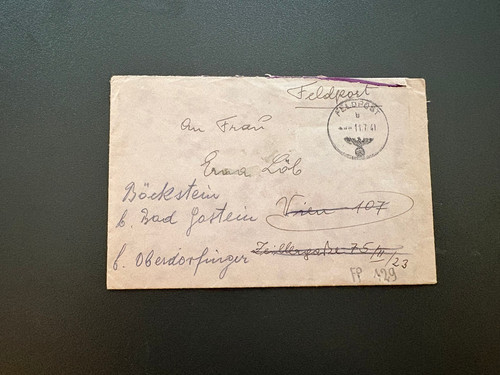 Feldpost
FELDPOST
b
11.7.41
An Frau
Erna Löb
Böckstein
b. Bad Gastein Wien 107
b. Oberdorfinger Zeillergasse 75/II/23
FP 129